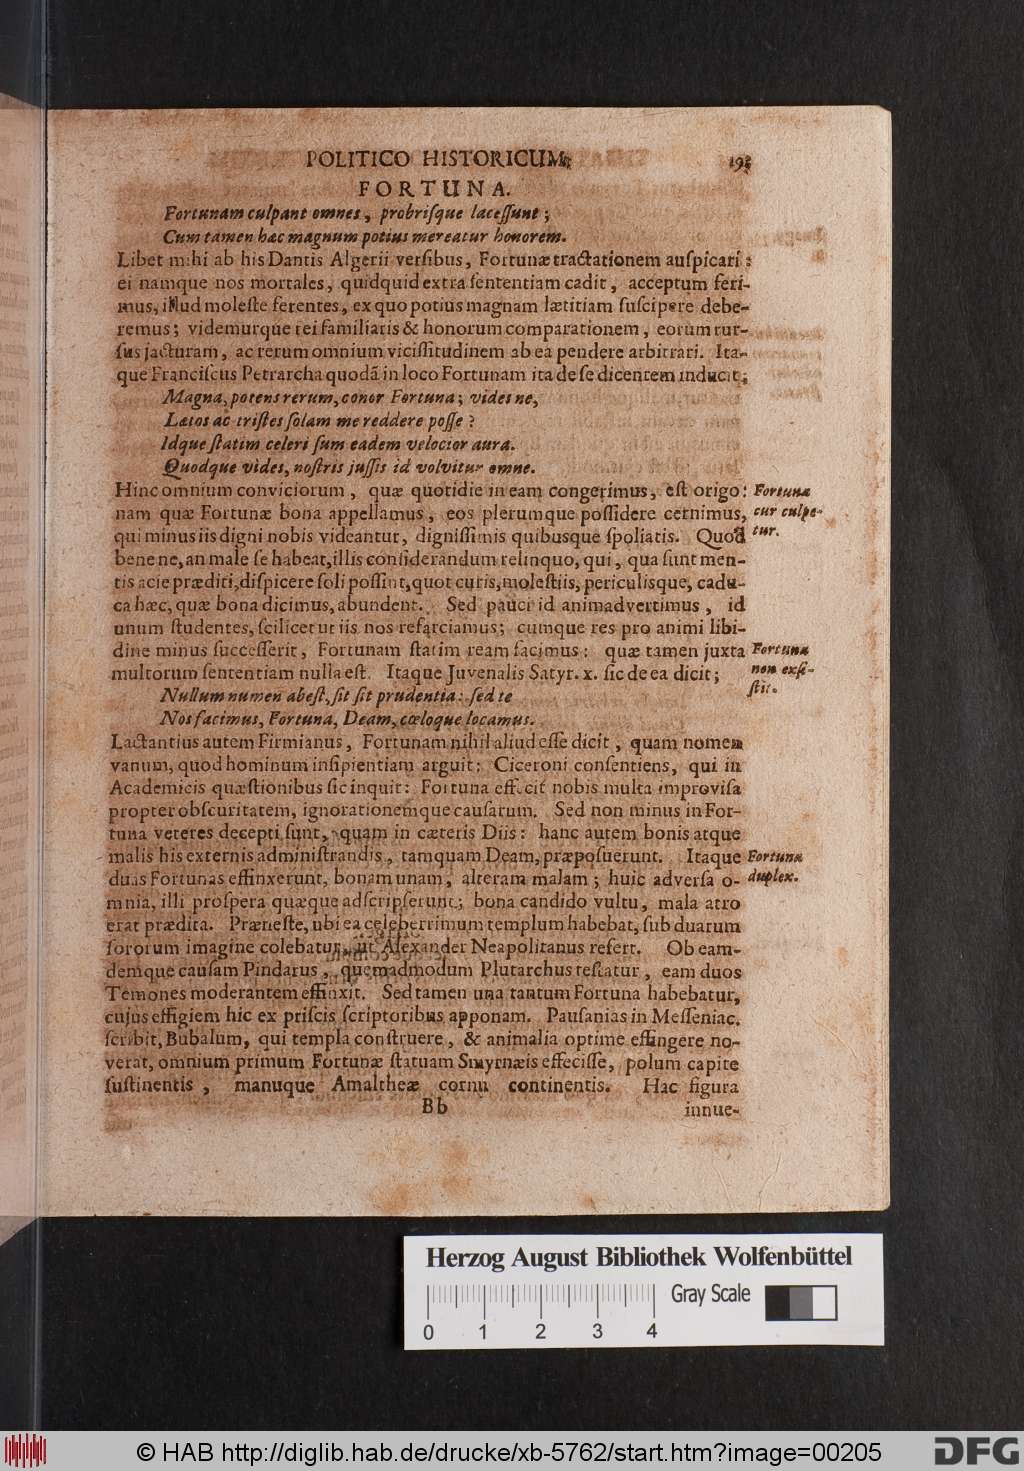 POLITICO HISTORICUM. 193
FORTUNA.
Fortunam culpant omnes, probriſque laceſſunt;
Cum tamen hac magnum potius mereatur honorem.
Libet mihi ab his Dantis Algerii verſibus, Fortunæ tractationem auſpicari:
ei namque nos mortales, quidquid extra ſententiam cadit, acceptum feri-
mus, illud moleſte ferentes, ex quo potius magnam lætitiam ſuſcipere debe-
remus; videmurque rei familiaris & honorum comparationem, eorum rur-
ſus jacturam, ac rerum omnium viciſſitudinem ab ea pendere arbitrari. Ita-
que Franciſcus Petrarcha quodã in loco Fortunam ita de ſe dicentem inducit;
Magna, potens rerum, conor Fortuna; vides ne,
Lætos ac triſtes ſolam me reddere poſſe?
Idque ſtatim celeri ſum eadem velocior aura.
Quodque vides, noſtris juſſis id volvitur omne.
Hinc omnium conviciorum, quæ quotidie in eam congerimus, eſt origo:
Fortuna
nam quæ Fortunæ bona appellamus, eos plerumque poſſidere cernimus,
cur culpe-
qui minus iis digni nobis videantur, digniſſimis quibusque ſpoliatis. Quod
tur.
bene ne, an male ſe habeat, illis conſiderandum relinquo, qui, qua ſunt men-
tis acie præditi, diſpicere ſoli poſſint, quot curis, moleſtiis, periculisque, cadu-
ca hæc, quæ bona dicimus, abundent. Sed pauci id animadvertimus, id
unum ſtudentes, ſcilicet ut iis nos refarciamus; cumque res pro animi libi-
dine minus ſucceſſerit, Fortunam ſtatim ream facimus: quæ tamen juxta
Fortuna
multorum ſententiam nulla eſt. Itaque Juvenalis Satyr. x. ſic de ea dicit;
non exſi-
ſtit.
Nullum numen abeſt, ſit ſit prudentia: ſed te
Nos facimus, Fortuna, Deam, cœloque locamus.
Lactantius autem Firmianus, Fortunam nihil aliud eſſe dicit, quam nomen
vanum, quod hominum inſipientiam arguit: Ciceroni conſentiens, qui in
Academicis quæſtionibus ſic inquit: Fortuna efficit nobis multa improviſa
propter obſcuritatem, ignorationemque cauſarum. Sed non minus in For-
tuna veteres decepti ſunt, quam in cæteris Diis: hanc autem bonis atque
malis his externis adminiſtrandis, tamquam Deam, præpoſuerunt. Itaque
Fortuna
duas Fortunas effinxerunt, bonam unam, alteram malam; huic adverſa o-
duplex.
mnia, illi proſpera quæque adſcripſerunt; bona candido vultu, mala atro
erat prædita. Præneſte, ubi ea celeberrimum templum habebat, ſub duarum
ſororum imagine colebatur, ut Alexander Neapolitanus refert. Ob eam-
demque cauſam Pindarus, quemadmodum Plutarchus teſtatur, eam duos
Temones moderantem effinxit. Sed tamen una tantum Fortuna habebatur,
cujus effigiem hic ex priſcis ſcriptoribus apponam. Pauſanias in Meſſeniac.
ſcribit, Bubalum, qui templa conſtruere, & animalia optime effingere no-
verat, omnium primum Fortunæ ſtatuam Smyrnæis effeciſſe, polum capite
ſuſtinentis, manuque Amaltheæ cornu continentis. Hac figura
Bb innue-
Herzog August Bibliothek Wolfenbüttel
Gray Scale
0 1 2 3 4
© HAB http://diglib.hab.de/drucke/xb-5762/start.htm?image=00205
DFG